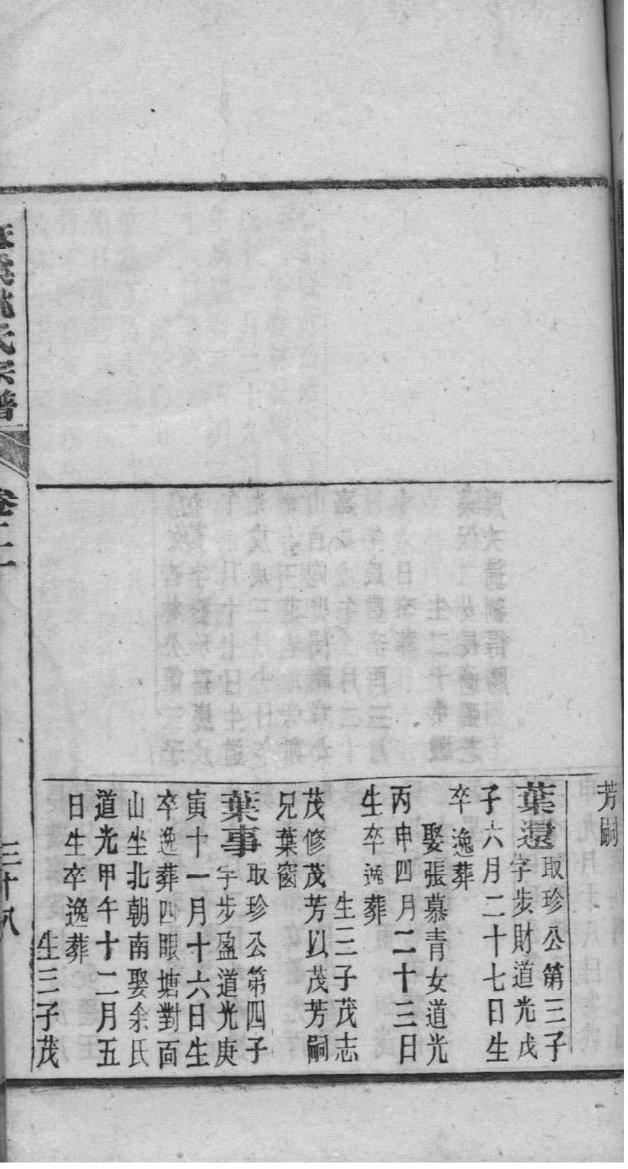 芳嗣
葉還取珍公第三子
字步財道光戊
子六月二十七日生
卒逸葬
娶張慕青女道光
丙申四月二十三日
生卒逸葬
生三子茂志
茂修茂芳以茂芳嗣
兄葉窗
葉事取珍公第四子
字步盈道光庚
寅十一月十六日生
卒逸葬四眼塘對面
山坐北朝南娶余氏
道光甲午十二月五
日生卒逸葬
生三子茂
氏宗譜
卷二
三十八